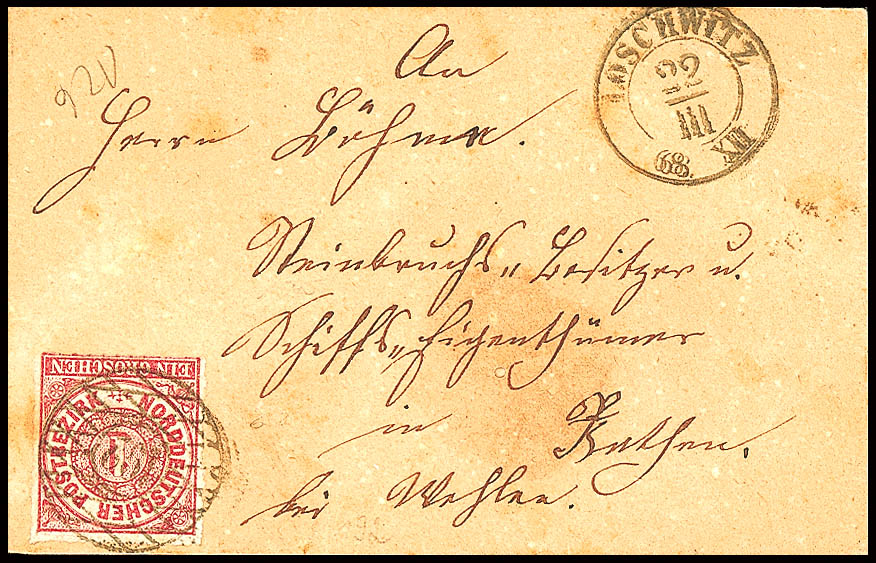 920
An
Herrn Böhme.
Steinbruchs„ Besitzer u.
Schiffs„ Eigenthümer
in Rathen,
bei Wehlen.
LOSCHWITZ
22
III
68. XII
EIN GROSCHEN
NORDDEUTSCHER POSTBEZIRK
1